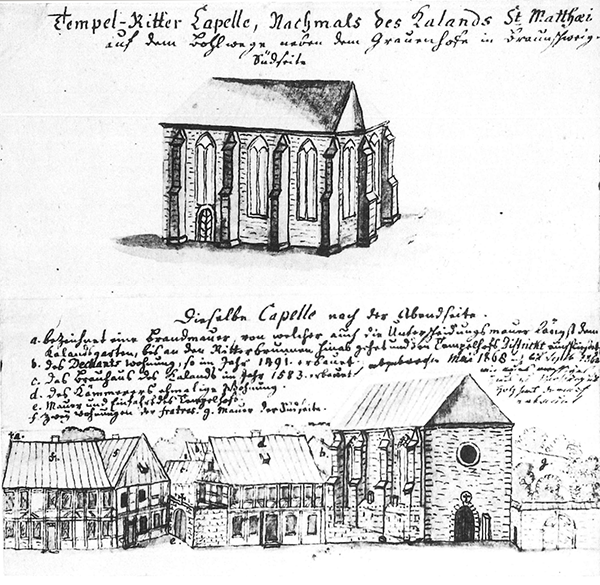 Tempel-Ritter Capelle, Nachmals des Kalands St Matthæi
auf dem Bohlwege neben dem Grauenhofe in Braunschweig.
Südseite
Dieselbe Capelle nach der Abendseite.
a. bezeichnet eine Brandmauer von welcher auch die Unterscheidungsmauer längst dem
Kalandsgarten, bis an den Ritterbrunnen hinab gehet und den Tempelhofs District
b. des Decants wohnung im Jahr 1491. erbauet. abgebrochen Mai 1868
c. des Brauhaus des Kalands im Jahr 1583. erbauet
d. des Kämmerers ehmalige Wohnung.
e. Mauer und Einfahrt des Tempelhofs.
f. zwei Wohnungen der fratres. g. Mauer der Südseite.
a.
f.
f
c
e
d
b
g